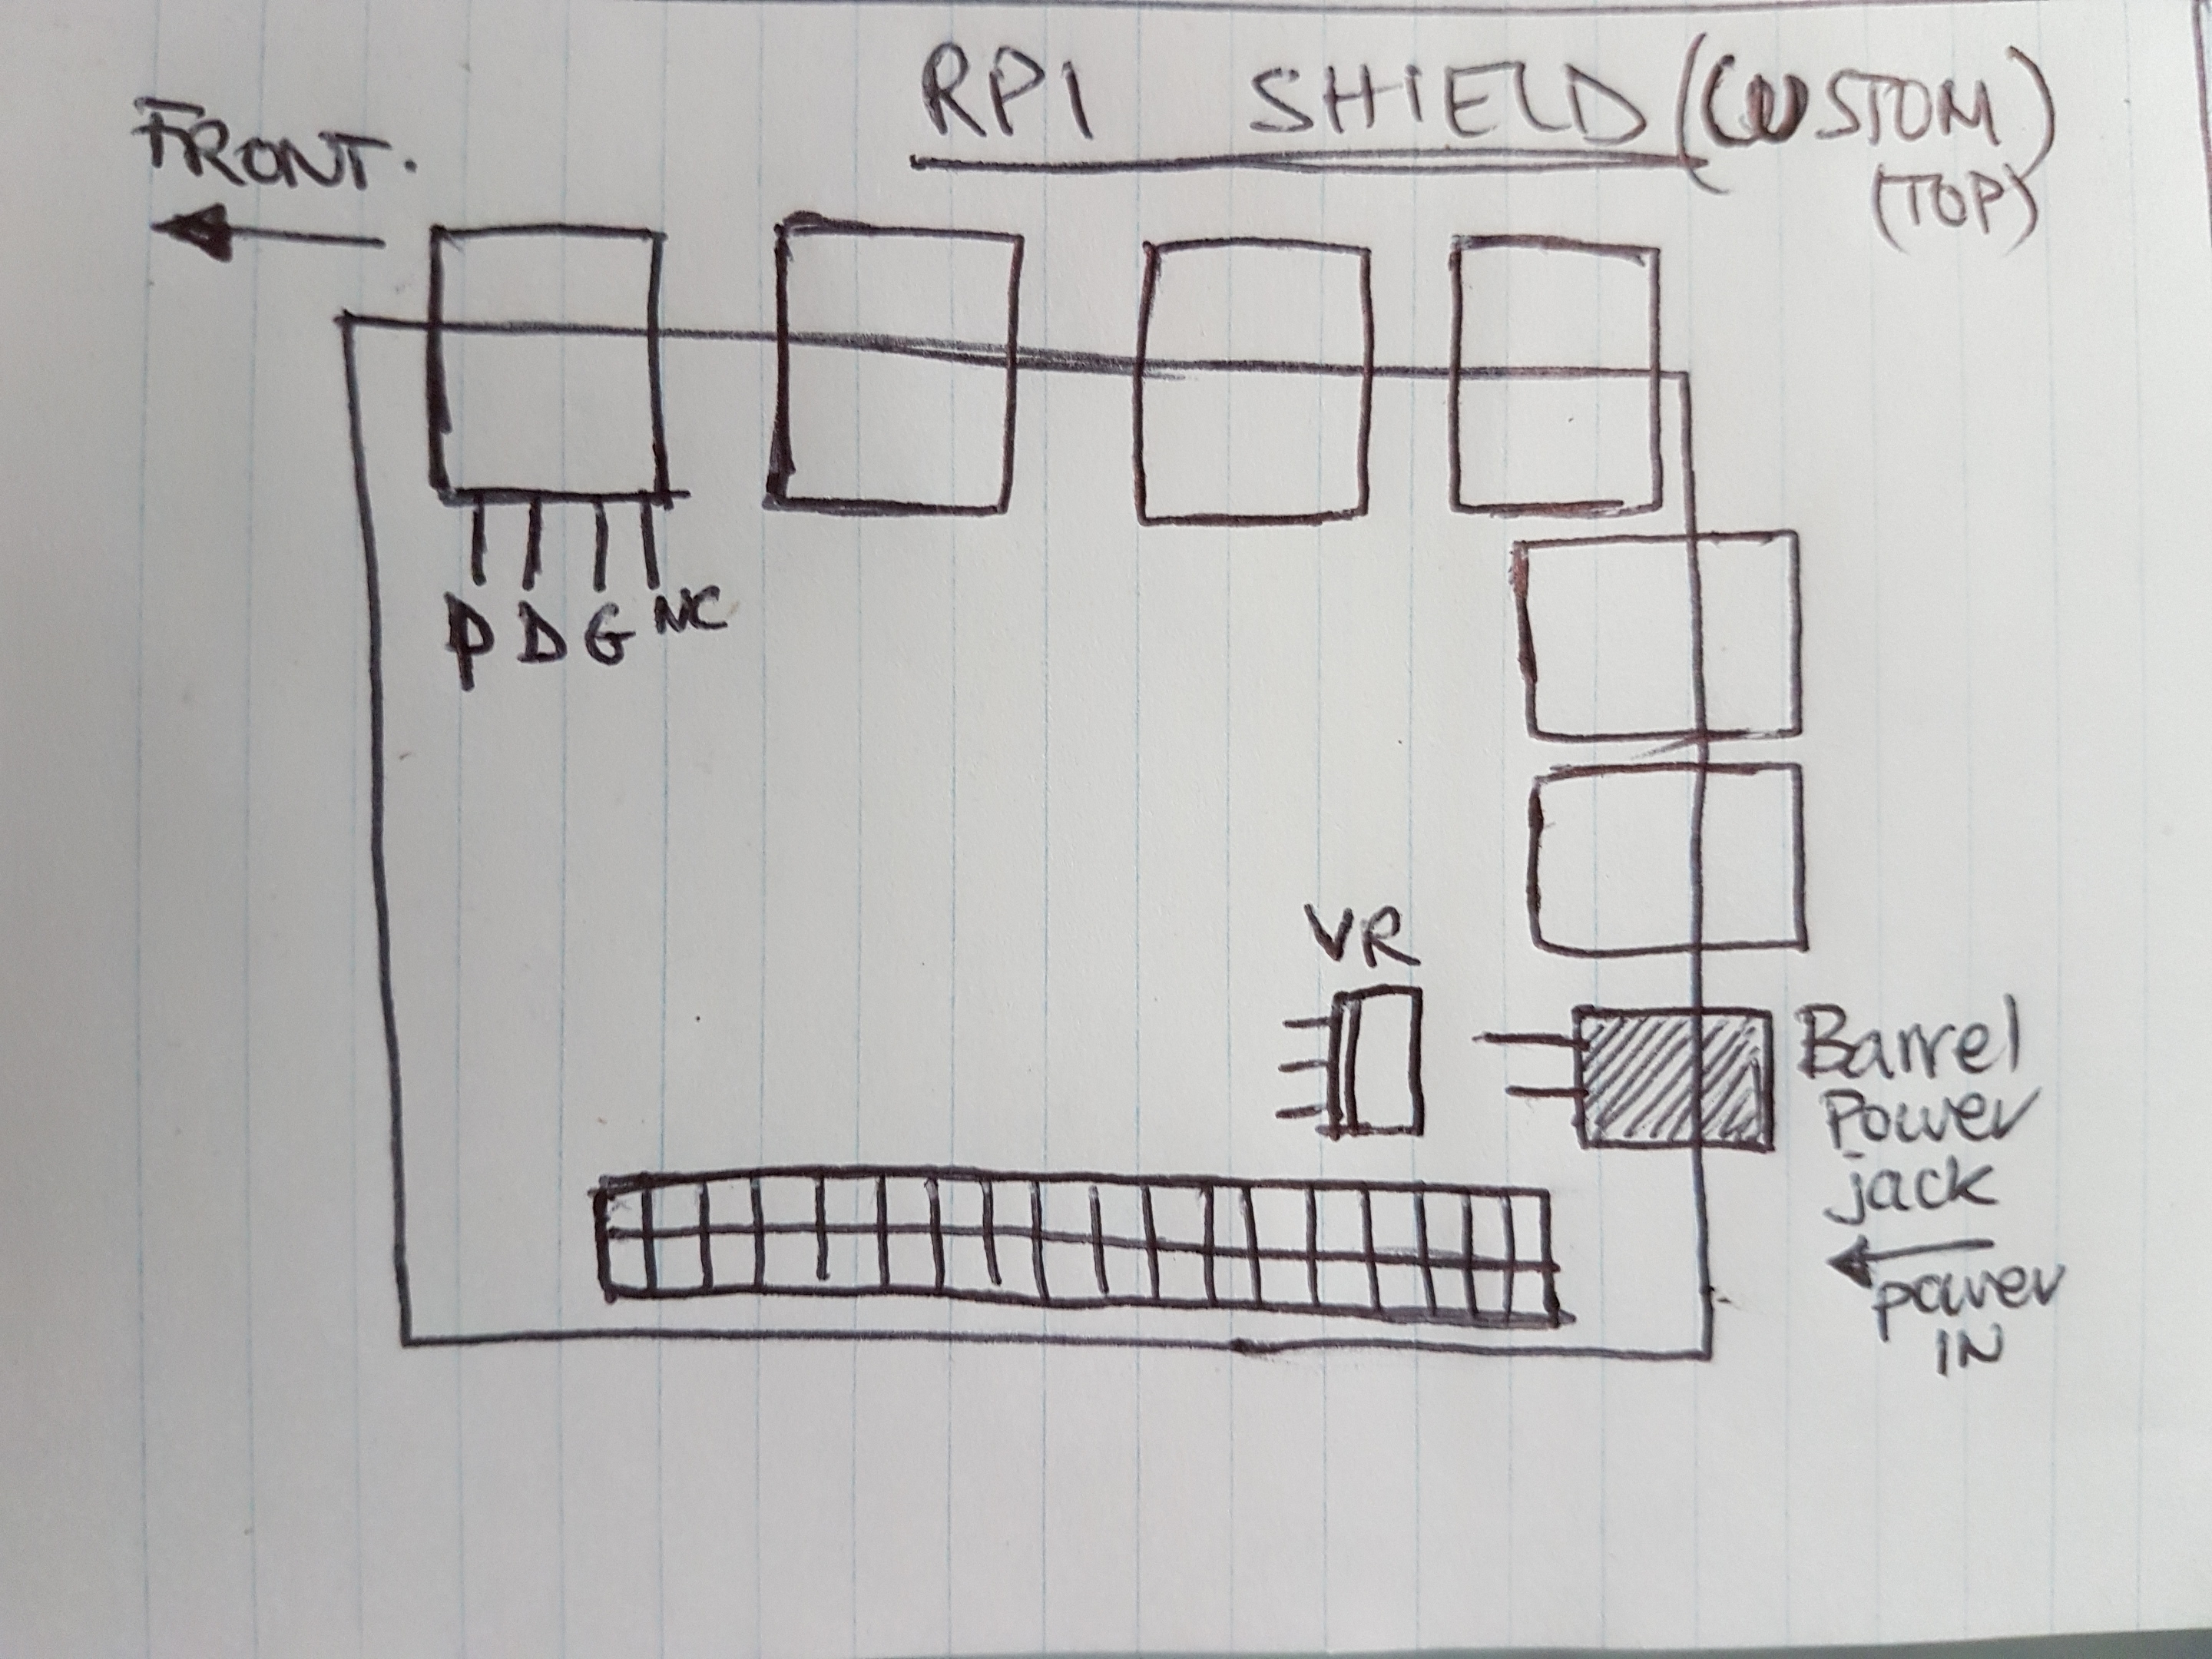 RPI SHIELD (CUSTOM)
(TOP)
FRONT.
P D G NC
VR
Barrel
Power
jack
power
IN